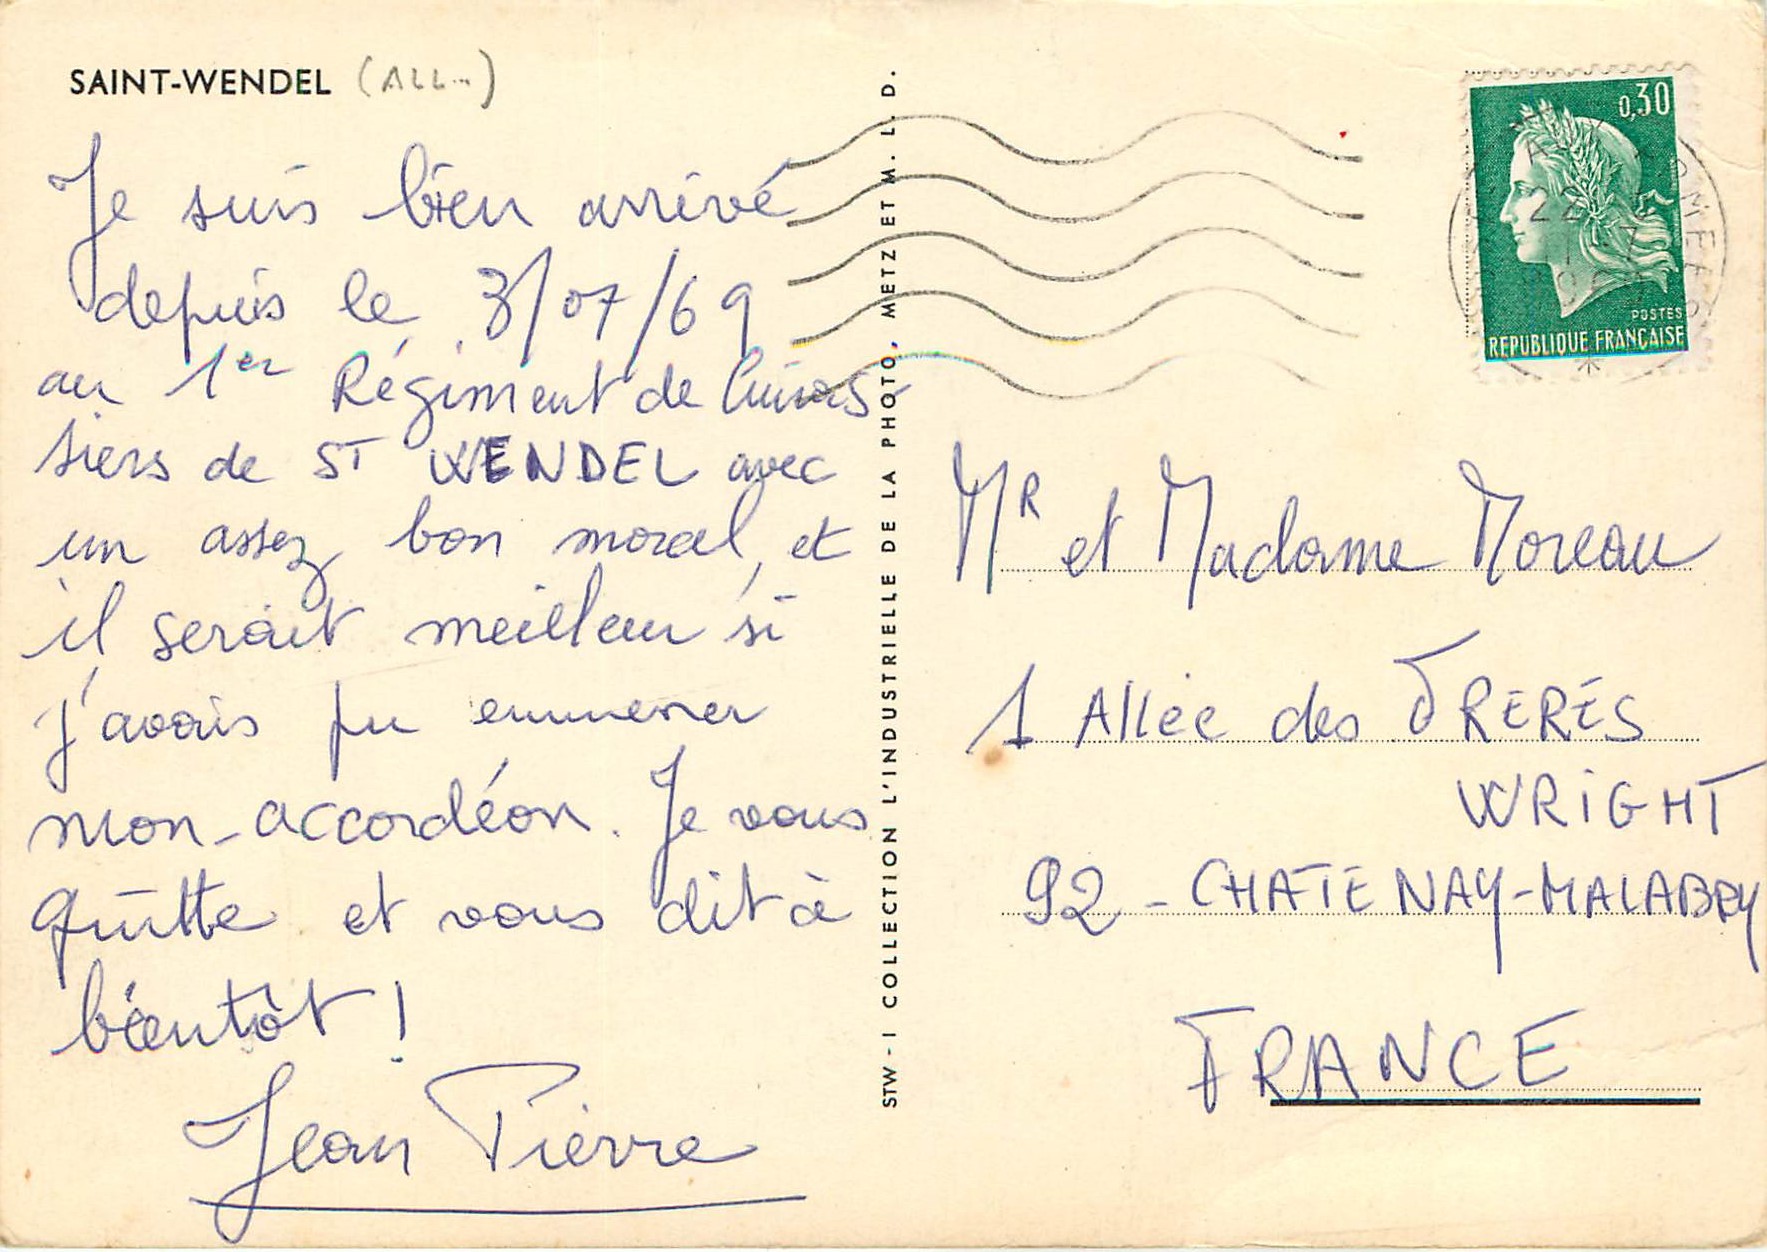 SAINT-WENDEL (ALL...)
Je suis bien arrivé
depuis le 3/07/69
au 1er Régiment de Cuiras
siers de ST WENDEL avec
un assez bon moral, et
il serait meilleur si
j'avais pu emmener
mon accordéon. Je vous
quitte et vous dit à
bientôt !
Jean Pierre
STW - 1 COLLECTION L'INDUSTRIELLE DE LA PHOTO, METZ ET M. L. D.
0,30
POSTES
REPUBLIQUE FRANÇAISE
22
MR et Madame Moreau
1 Allée des FRERÉS
WRIGHT
92 - CHATENAY-MALABRY
FRANCE